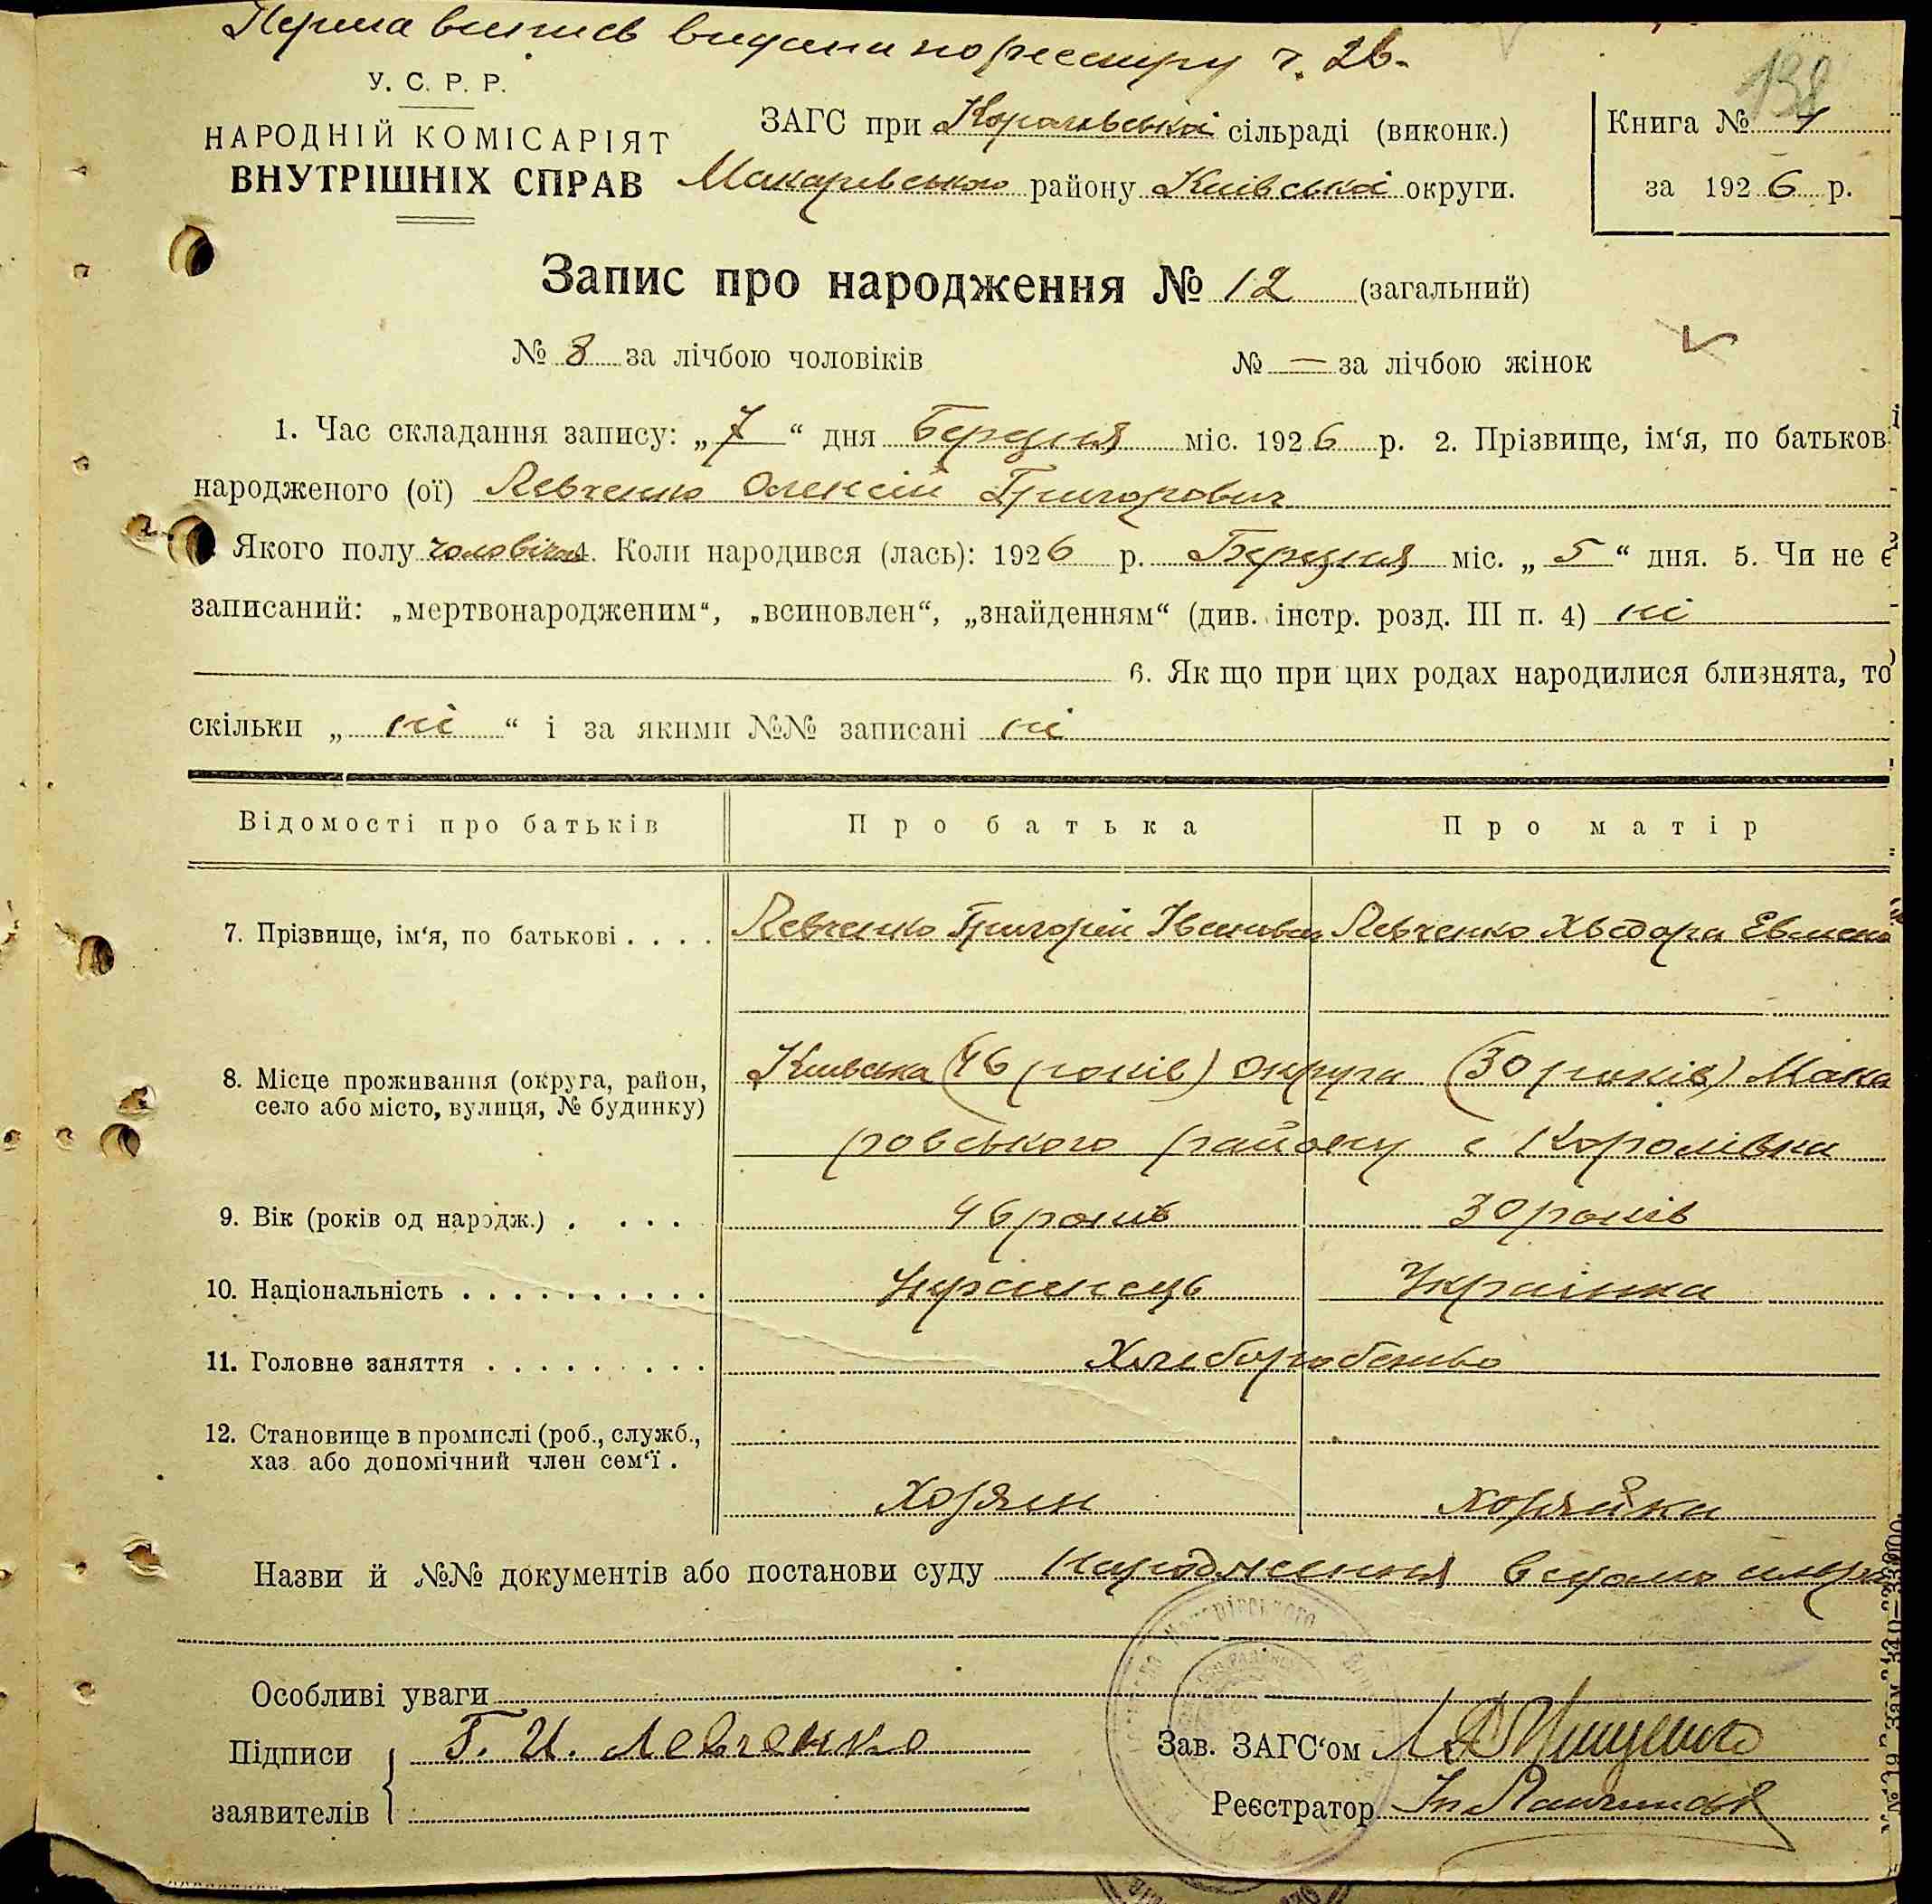 Перша випись видана по реєстру ч. 26.
138
У. С. Р. Р.
НАРОДНІЙ КОМІСАРІЯТ
ВНУТРІШНІХ СПРАВ
ЗАГС при сільраді (виконк.)
Макарівського району Київської округи.
Книга №
за 1926 р.
Запис про народження № 12 (загальний)
№ 8 за лічбою чоловіків № — за лічбою жінок
1. Час складання запису: „7“ дня Березня міс. 1926 р. 2. Прізвище, ім‘я, по батьков
народженого (ої) Левченко Олексій Григорович
Якого полу 4. Коли народився (лась): 1926 р. Березня міс. „5“ дня. 5. Чи не є
записаний: „мертвонародженим“, „всиновлен“, „знайденням“ (див. інстр. розд. III п. 4) ні
6. Як що при цих родах народилися близнята, то
скільки „ні“ і за якими №№ записані ні
Відомості про батьків Про батька Про матір
7. Прізвище, ім‘я, по батькові . . . . Левченко Григорій Іванович Левченко Хведора Евмено
8. Місце проживання (округа, район,
село або місто, вулиця, № будинку)
Київська (46 років) округа (30 років) Мака
ровського району с Королівка
9. Вік (років од народж.) . . . . 46 років 30 років
10. Національність . . . . . . . . . . Українець Українка
11. Головне заняття . . . . . . . . . Хліборобство
12. Становище в промислі (роб., служб.,
хаз. або допомічний член сем‘ї .
Хозяин хозяйка
Назви й №№ документів або постанови суду народження
Особливі уваги
Підписи Г. И. Левченко
заявителів
Зав. ЗАГС‘ом
Реєстратор